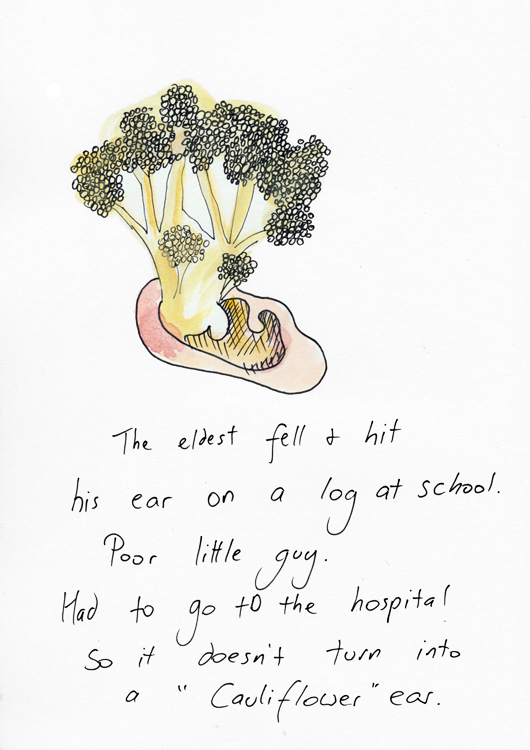 The eldest fell & hit
his ear on a log at school.
Poor little guy.
Had to go to the hospital
So it doesn't turn into
a "Cauliflower" ear.